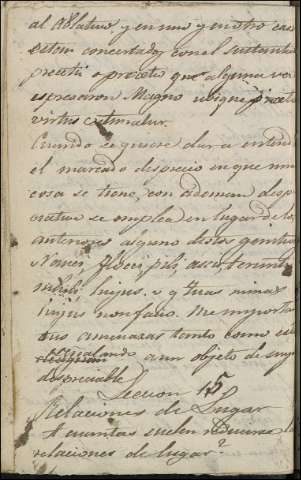 al Ablativo y en uno y en otro caso
estan concertados con el sustantivo
pretii o que alguna vez
espresaron Magno ubique pretio
virtus estimatur.
Cuando se quiere dar a entender
el marcado desprecio en que una
cosa se tiene, con ademan desp
se emplea en lugar de los
anteriores alguno destos genitivos
Nauci, flocci, pili, assis, teruncii
nihili hujus. v. g. tuas minas
hujus non facio. Me importan
tus amenazas tanto como esto
señalando a un objeto de suyo
despreciable
Leccion 15
Relaciones de Lugar
A cuantas suelen reducirse
relaciones de lugar?